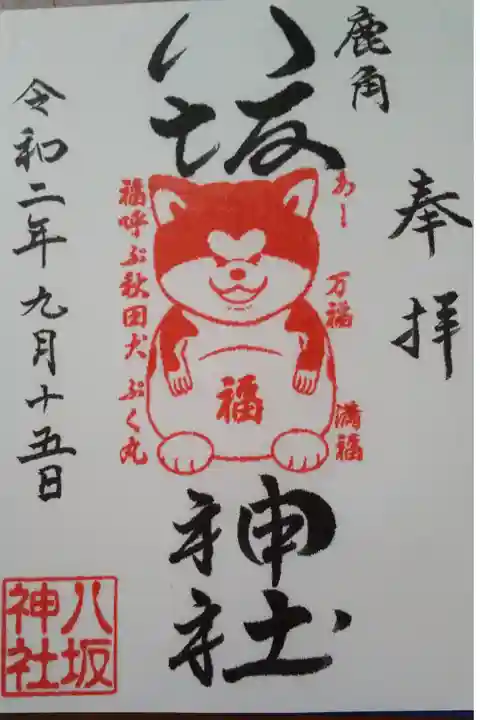 奉拝
鹿角
八坂神社
あ〜 万福 満福
福
福呼ぶ秋田犬 ぷく丸
令和二年九月十五日
八坂
神社